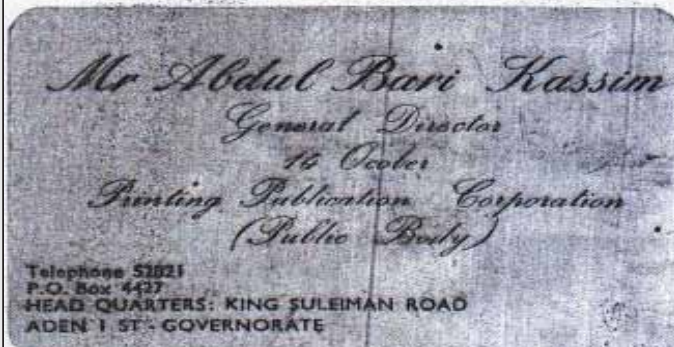 Mr Abdul Bari Kassim
General Director
14 Ocober
Printing Publication Corporation
(Public Body)
Telephone 52821
P.O. Box 4427
HEAD QUARTERS: KING SULEIMAN ROAD
ADEN 1 ST - GOVERNORATE